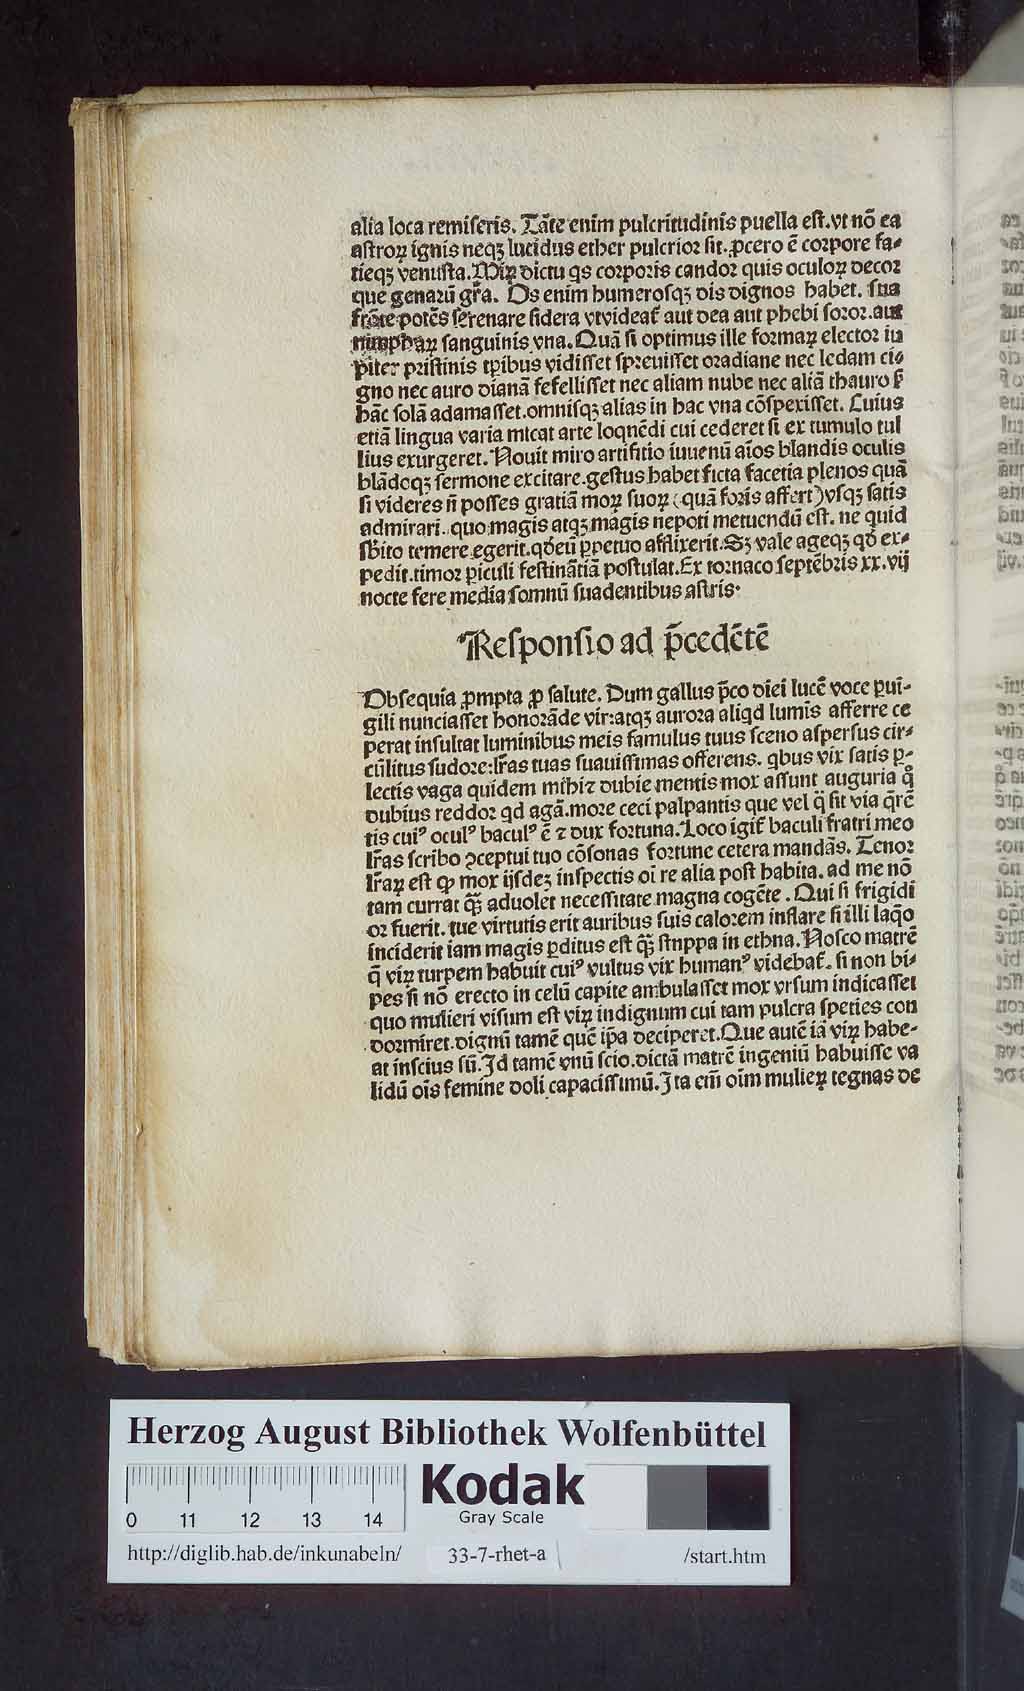 alia loca remiseris. Tāte enim pulcritudinis puella est. vt nō ea
astroꝝ ignis neqꝫ lucidus ether pulcrior sit. ꝓcero ē corpore fa⸗
cieqꝫ venusta. Miꝝ dictu qs corporis candor quis oculoꝝ decor
que genarū gr̄a. Os enim humerosqꝫ dis dignos habet. sua
frōte potēs serenare sidera vtvideat᷑ aut dea aut phebi soror. aut
nimphaꝝ sanguinis vna. Quā si optimus ille formaꝝ elector iu
piter pristinis tꝑibus vidisset spreuisset oradiane nec ledam ci⸗
gno nec auro dianā fefellisset nec aliam nube nec aliā thauro s̄
hāc solā adamasset. omnisqꝫ alias in hac vna cōsperisset. Cuius
etiā lingua varia micat arte loqnēdi cui cederet si ex tumulo tul
lius exurgeret. Nouit miro artifitio iuuenū aīos blandis oculis
blādoqꝫ sermone excitare. gestus habet ficta facetia plenos quā
si videres n̄ posses gratiā moꝝ suoꝝ (quā foris affert) vsqꝫ satis
admirari. quo magis atqꝫ magis nepoti metuendū est. ne quid
sbito temere egerit. qd eū ꝑpetuo afflixerit. Sꝫ vale ageqꝫ qd ex⸗
pedit. timor ꝑiculi festinātiā postulat. Ex tornaco septēbris xx. vij
nocte fere media somnū suadentibus astris.
Responsio ad p̄cedētē
Obsequia ꝓmpta ꝓ salute. Dum gallus p̄co diei lucē voce ꝑui⸗
gili nunciasset honorāde vir: atqꝫ aurora aliqd lumīs afferre ce
perat insultat luminibus meis famulus tuus sceno aspersus cir⸗
cūlitus sudore: lr̄as tuas suauissimas offerens. qbus vix satis ꝑ⸗
lectis vaga quidem mihi ⁊ dubie mentis mox assunt auguria q̄
dubius reddor qd agā. more ceci palpantis que vel q̄ sit via q̄rē
tis cuiꝰ oculꝰ baculꝰ ē ⁊ dux fortuna. Loco igit᷑ baculi fratri meo
lr̄as scribo ꝯceptui tuo cōsonas fortune cetera mandās. Tenor
lr̄aꝝ est ꝙ mox ijsdeꝫ inspectis oī re alia post habita. ad me nō
tam currat q̄ꝫ aduolet necessitate magna cogēte. Qui si frigidi
or fuerit. tue virtutis erit auribus suis calorem inflare si illi laq̄o
inciderit iam magis ꝑditus est q̄ꝫ stuppa in ethna. Nosco matrē
q̄ viꝝ turpem habuit cuiꝰ vultus vix humanꝰ videbat᷑. si non bi⸗
pes si nō erecto in celū capite ambulasset mox vrsum indicasset
quo mulieri visum est viꝝ indignum cui tam pulcra speties con
dormiret. dignū tamē quē ip̄a deciperet. Que autē iā viꝝ habe⸗
at inscius sū. Id tamē vnū scio. dictā matrē ingeniū habuisse va
lidū oīs femine doli capacissimū. Ita em̄ oīm mulieꝝ tegnas de
Herzog August Bibliothek Wolfenbüttel
Kodak
Gray Scale
0 11 12 13 14
http://diglib.hab.de/inkunabeln/ 33-7-rhet-a /start.htm